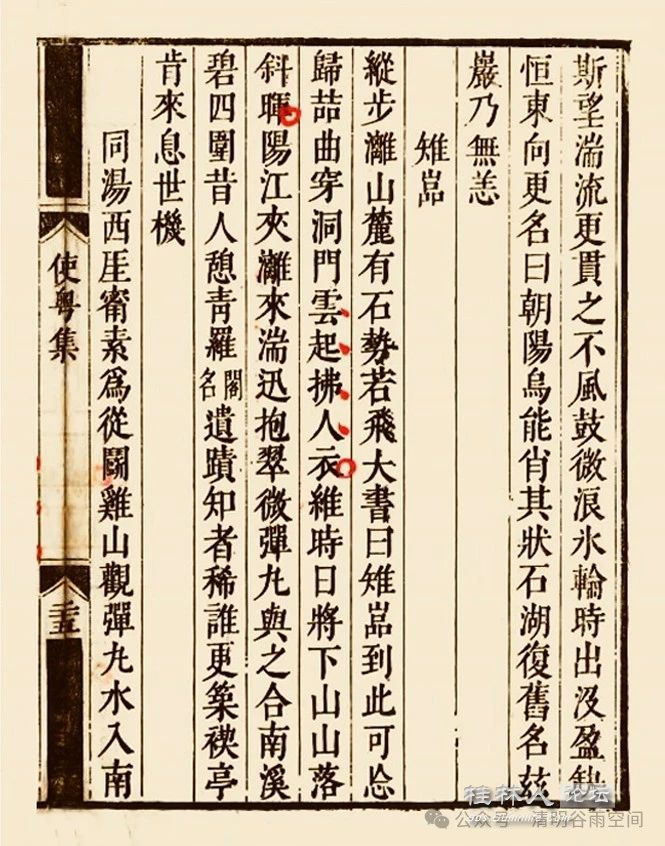 斯望湍流更貫之不風鼓微浪氷輪時出沒盈
恒東向更名曰朝陽烏能肖其狀石湖復舊名兹
巖乃無恙
雉嵓
縱步灕山麓有石勢若飛大書曰雉嵓到此可忘
歸喆曲穿洞門雲起拂人衣維時日將下山山落
斜暉陽江夾灕來湍迅抱翠微彈丸與之合南溪
碧四圍昔人憩青羅閣名遺蹟知者稀誰更築禊亭
肯來息世機
同湯西厓甯素爲從鬪雞山觀彈丸水入南
使粤集
二十五
桂林人论坛
公众号 · 清明谷雨空间